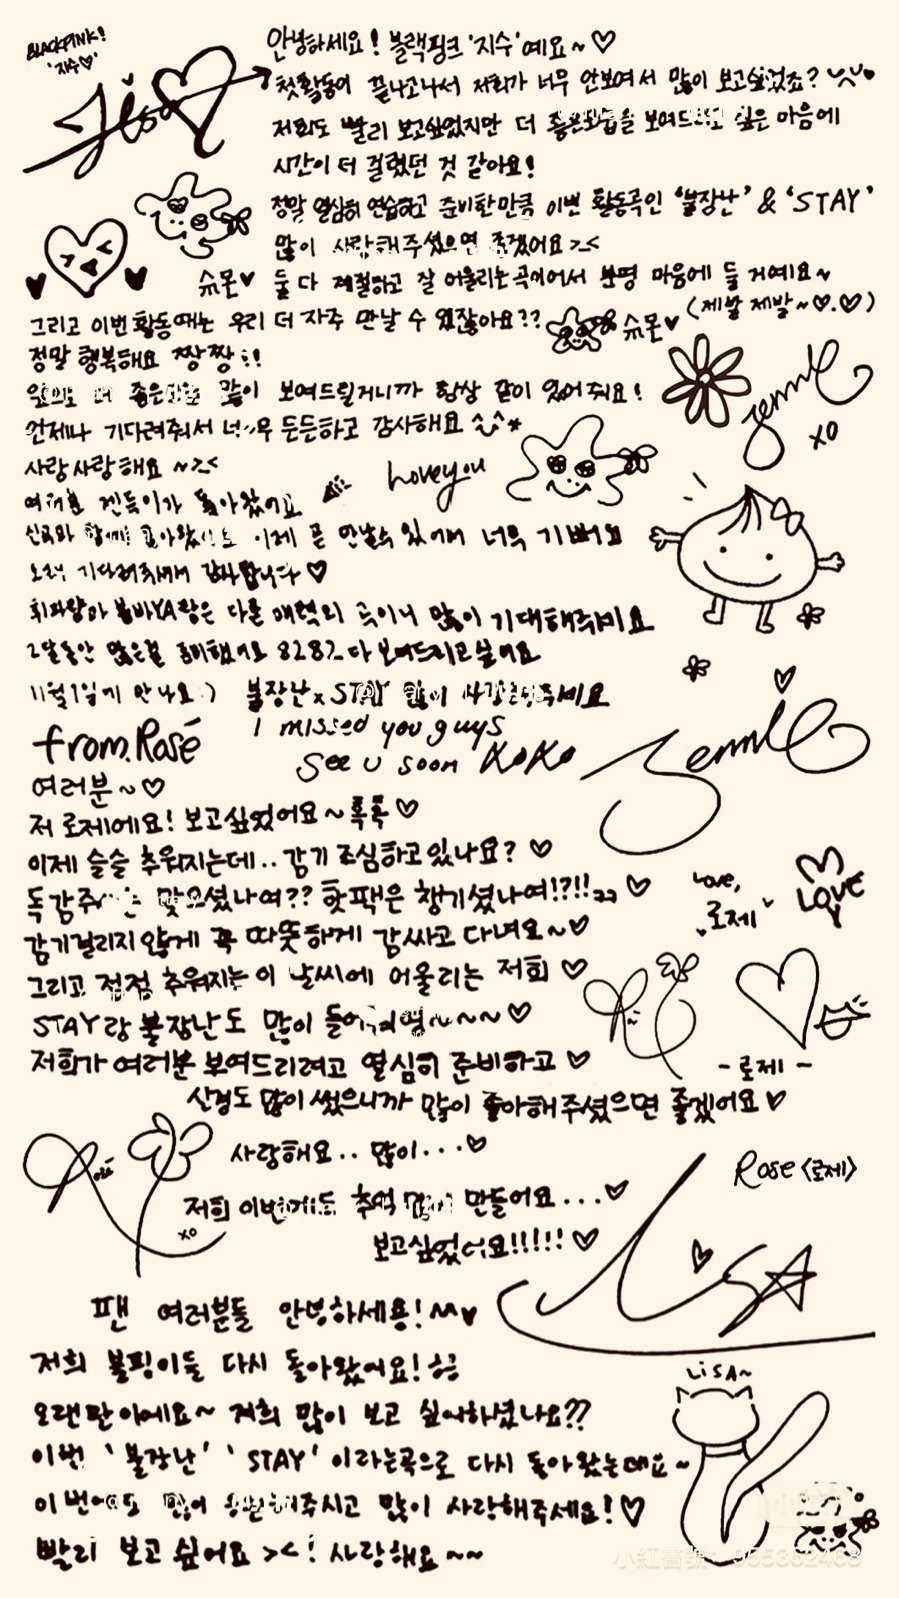 BLACKPINK!
'지수♡'
안녕하세요! 블랙핑크 '지수'예요~♡
첫활동이 끝나고나서 저희가 너무 안보여서 많이 보고싶었죠?
저희도 빨리 보고싶었지만 더 좋은모습을 보여드리고 싶은 마음에
시간이 더 걸렸던 것 같아요!
정말 열심히 연습하고 준비한만큼 이번 활동곡인 '불장난' & 'STAY'
많이 사랑해주셨으면 좋겠어요 >_<
슈몬♥ 둘 다 계절하고 잘 어울리는곡이어서 분명 마음에 들 거예요~
(제발 제발~♡.♡)
그리고 이번 활동때는 우리 더 자주 만날 수 있잖아요??
슈몬♥
정말 행복해요 짱짱!!
많이 보여드릴거니까 항상 같이 있어줘요!
언제나 기다려줘서 너무 든든하고 감사해요 ^_^*
사랑사랑해요 ~><
love you
Jennie
xo
여러분 젠득이가 돌아왔어요
이제 곧 만날수 있어서 너무 기뻐요
오래 기다려줘서 감사합니다 ♡
휘파람과 붐바YA랑은 다른 매력의 곡이니 많이 기대해주세요
2달동안 많은걸 준비했어요 8282 다보여드리고싶어요
11월1일에 만나요 :) 불장난 x STAY 많이 사랑해주세요
I missed you guys
See u soon XoXo
Jennie
from.Rosé
여러분~♡
저 로제예요! 보고싶었어요~흑흑♡
이제 슬슬 추워지는데.. 감기 조심하고있나요? ♡
독감주사는 맞으셨나여?? 핫팩은 챙기셨나여!?!! ♡
감기걸리지않게 꼭 따뜻하게 감싸고 다녀요~♡
그리고 점점 추워지는 이 날씨에 어울리는 저희 ♡
STAY랑 불장난도 많이 들어줘여~~~♡
저희가 여러분 보여드리려고 열심히 준비하고 ♡
신경도 많이 썼으니까 많이 좋아해주셨으면 좋겠어요♡
love,
로제
LOVE
-로제-
사랑해요.. 많이...♡
저희 이번에도 추억 많이 만들어요...♡
xo
보고싶었어요!!!!!♡
Rose <로제>
Lisa
팬 여러분들 안녕하세용!^^♥
저희 블핑이들 다시 돌아왔어요!
LiSA~
오랜만이에요~ 저희 많이 보고 싶어하셨나요??
이번 '불장난' 'STAY' 이라는곡으로 다시 돌아왔는데요~
이번에도 많이 응원해주시고 많이 사랑해주세요!♡
빨리 보고 싶어요 ><! 사랑해요~~
小紅書號：955362468